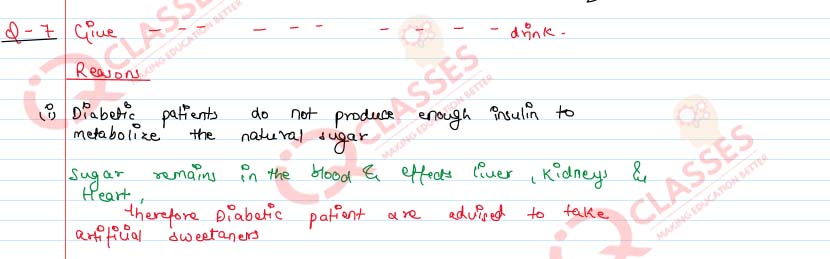 Q-7 Give --- --- ---- drink.
Reasons
(i) Diabetic patients do not produce enough insulin to
metabolize the natural sugar
Sugar remains in the blood & effects liver, Kidneys &
Heart,
therefore Diabetic patient are advised to take
artificial sweetaners
IQ CLASSES
MAKING EDUCATION BETTER
IQ CLASSES
MAKING EDUCATION BETTER
IQ CLASSES
MAKING EDUCATION BETTER